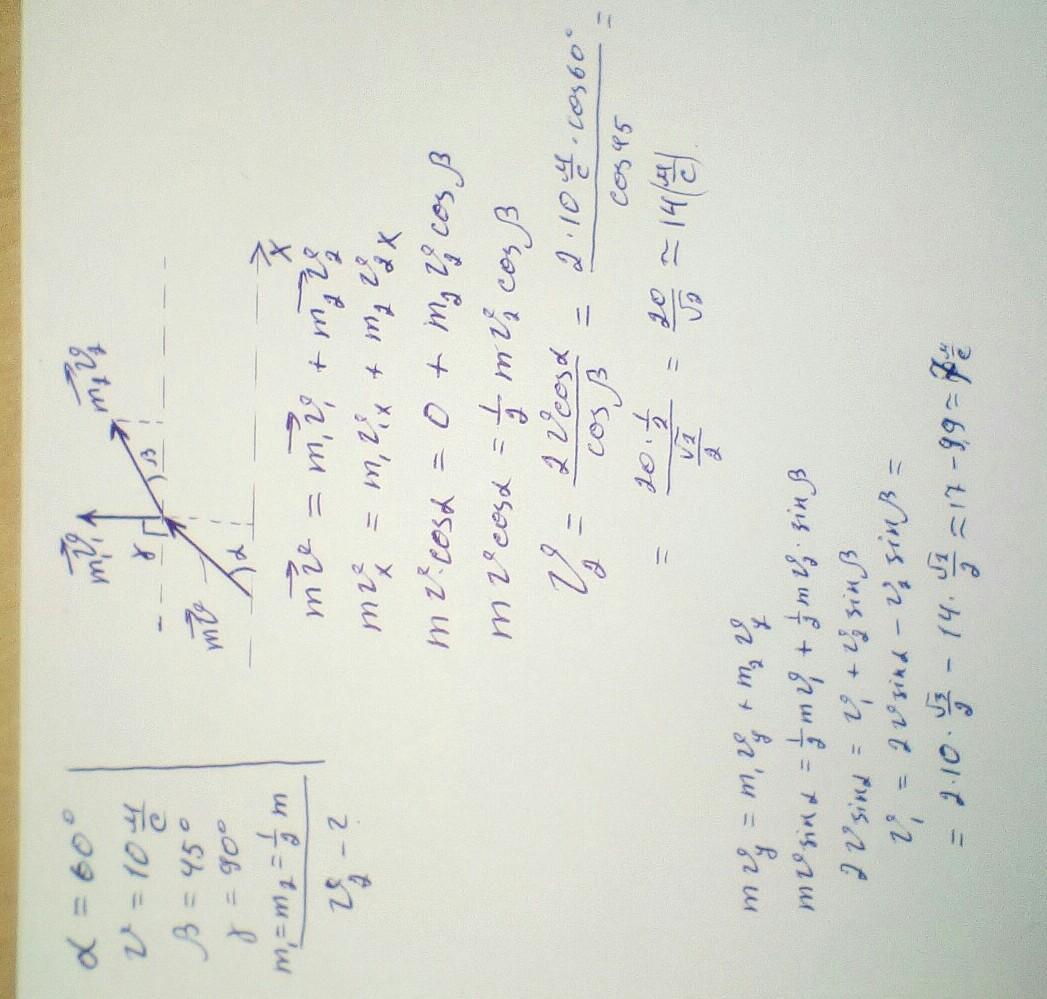 α = 60°
v = 10 м/с
β = 45°
γ = 90°
m₁ = m₂ = 1/2 m
v₂ - ?
m₁v₁
m₂v₂
γ
β
mv
α
x
mv = m₁v₁ + m₂v₂
mvₓ = m₁v₁ₓ + m₂v₂ₓ
mv·cosα = 0 + m₂v₂cosβ
mv cosα = 1/2 mv₂ cosβ
v₂ = 2v cosα / cosβ = 2·10 м/с · cos60° / cos45 =
= 20·1/2 / √2/2 = 20/√2 ≃ 14 (м/с).
mv_y = m₁v_y + m₂v_y
mv sinα = 1/2 mv₁ + 1/2 mv₂·sinβ
2v sinα = v₁ + v₂ sinβ
v₁ = 2v sinα - v₂ sinβ =
= 2·10·√3/2 - 14·√2/2 = 17 - 9,9 = 7 м/с